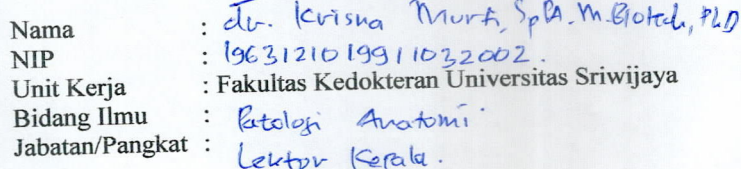 Nama : dr. Krisna Murti, SpPA. M.Biotech, PhD
NIP : 196312101991032002.
Unit Kerja : Fakultas Kedokteran Universitas Sriwijaya
Bidang Ilmu : Patologi Anatomi
Jabatan/Pangkat : Lektor Kepala.